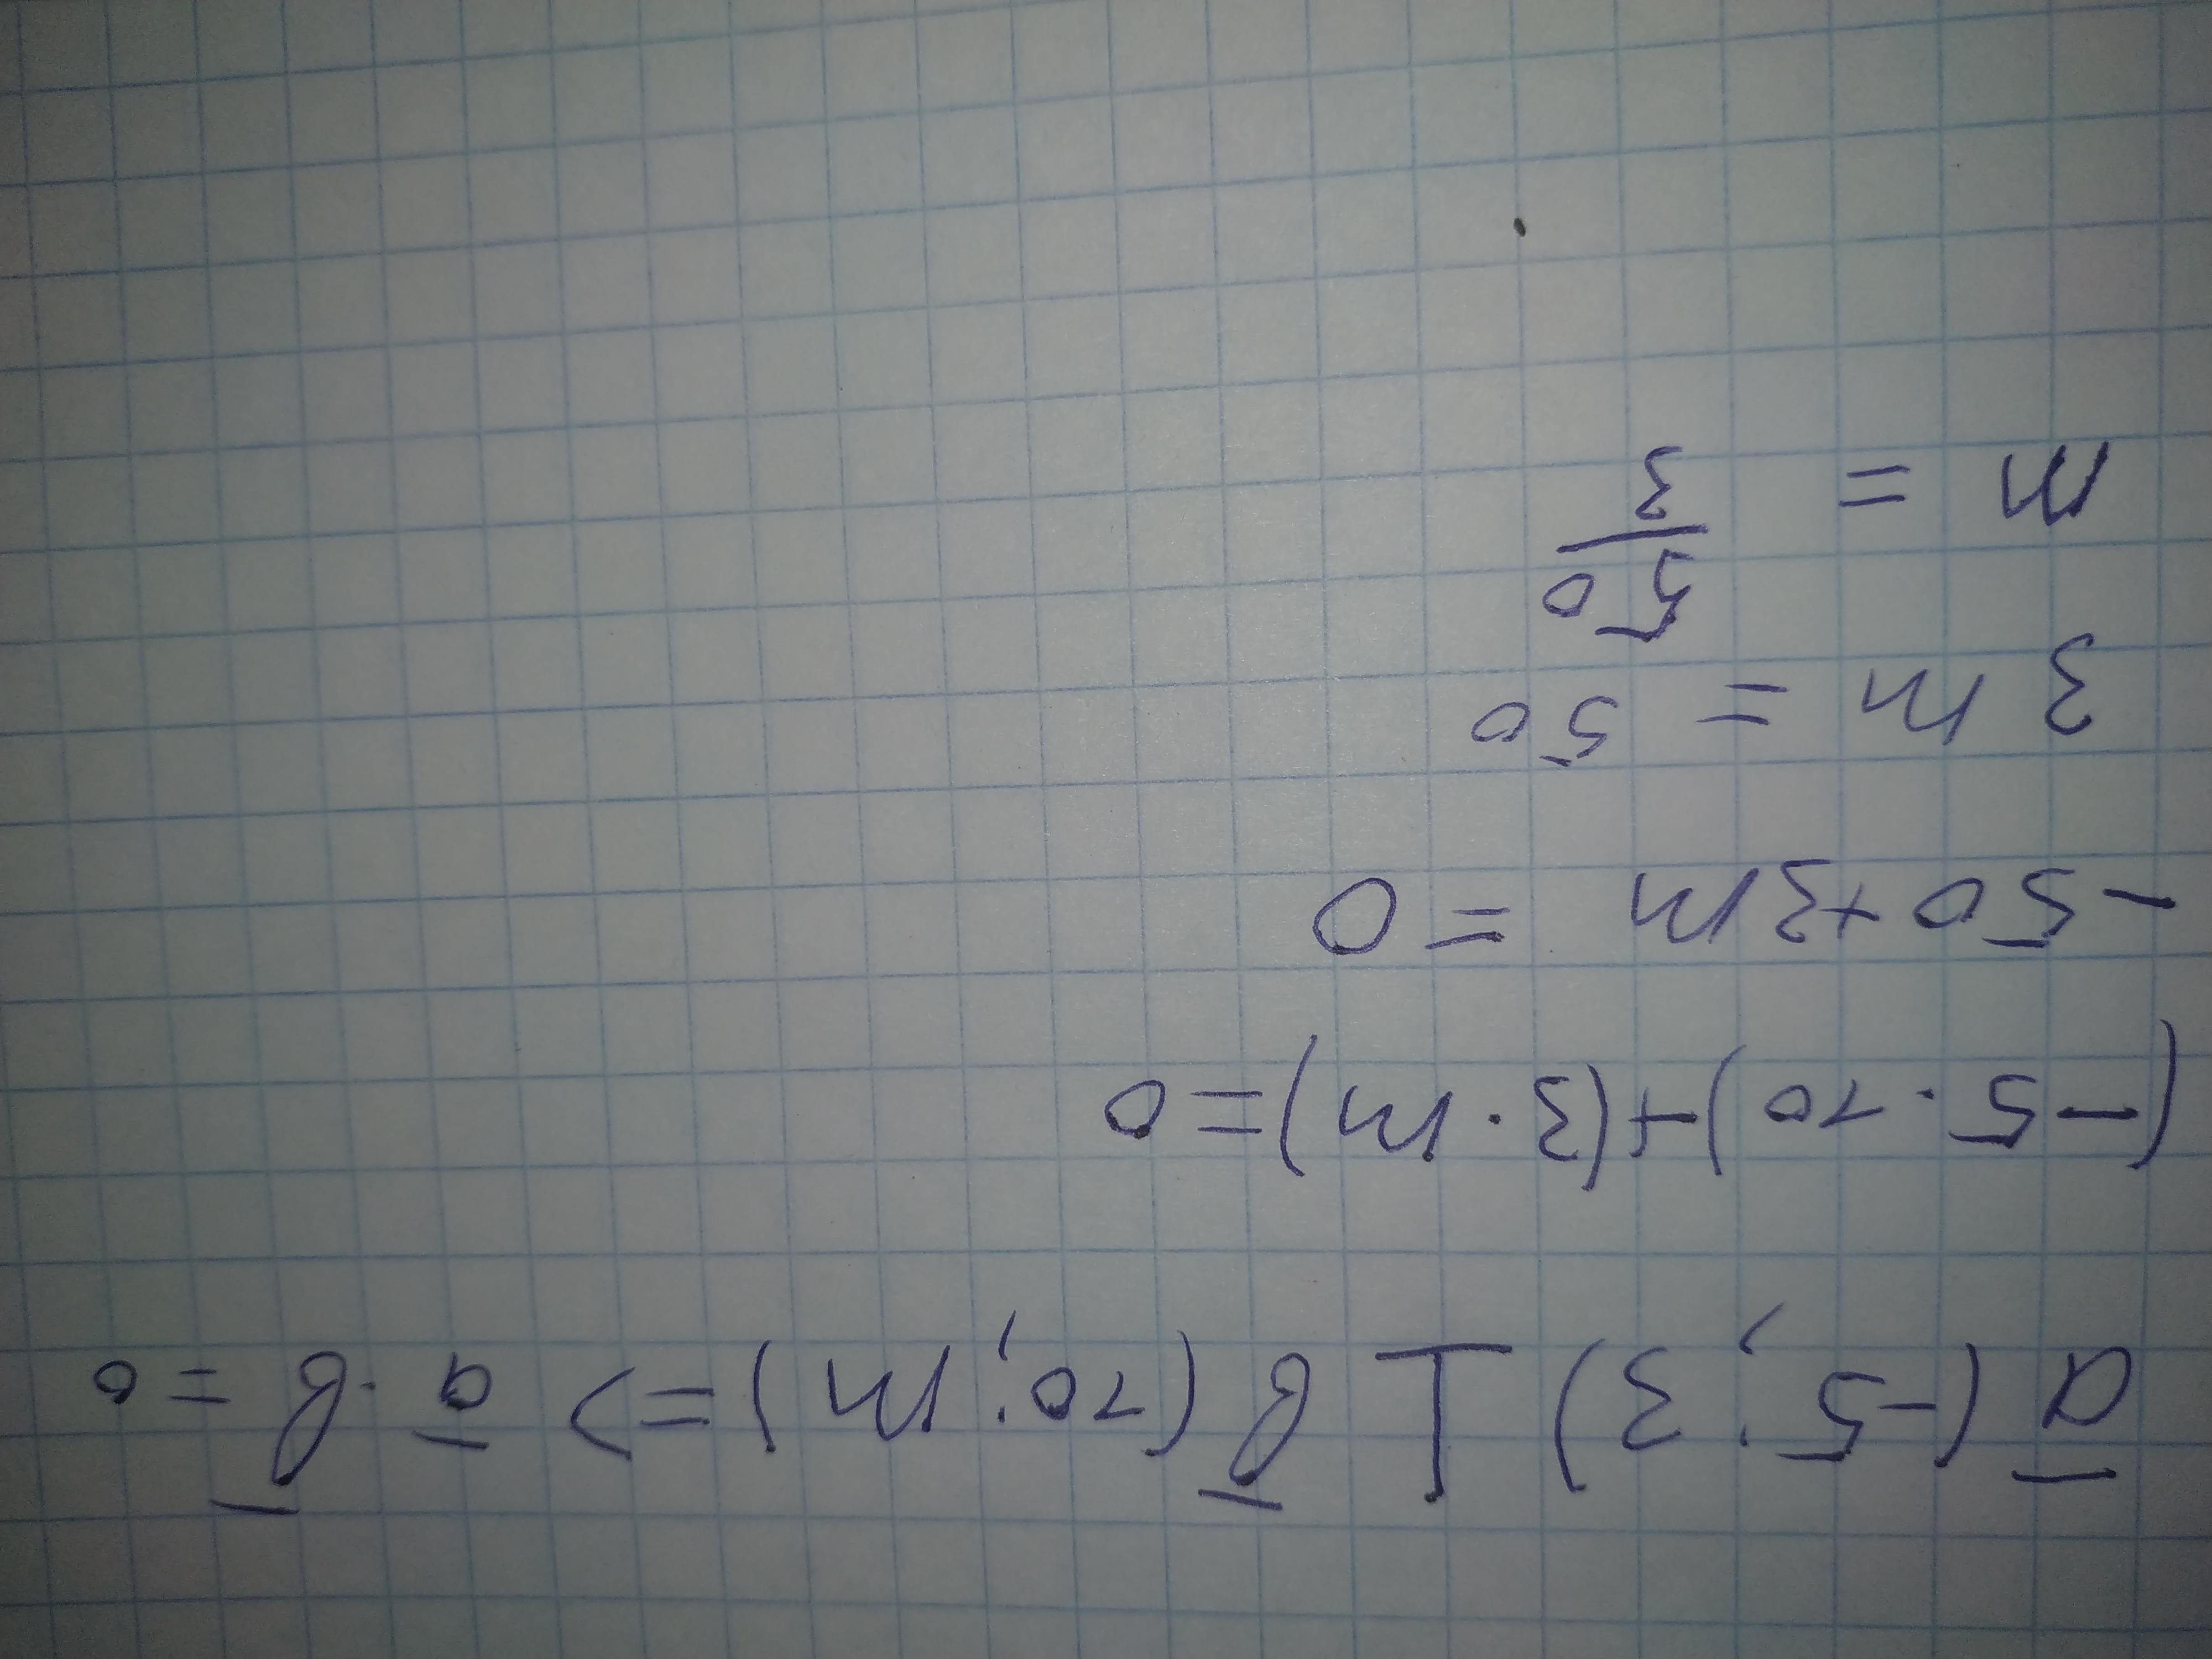 a̅ (-5; 3) ⊥ b̅ (10; m) => a̅ · b̅ = 0
(-5 · 10) + (3 · m) = 0
-50 + 3m = 0
3m = 50
m = 50/3